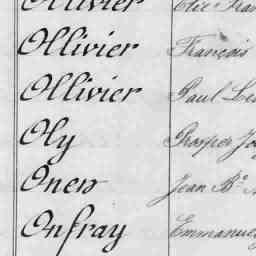 Ollivier
Ollivier François
Ollivier Paul
Oly Prosper
Onen Jean Bte
Onfray